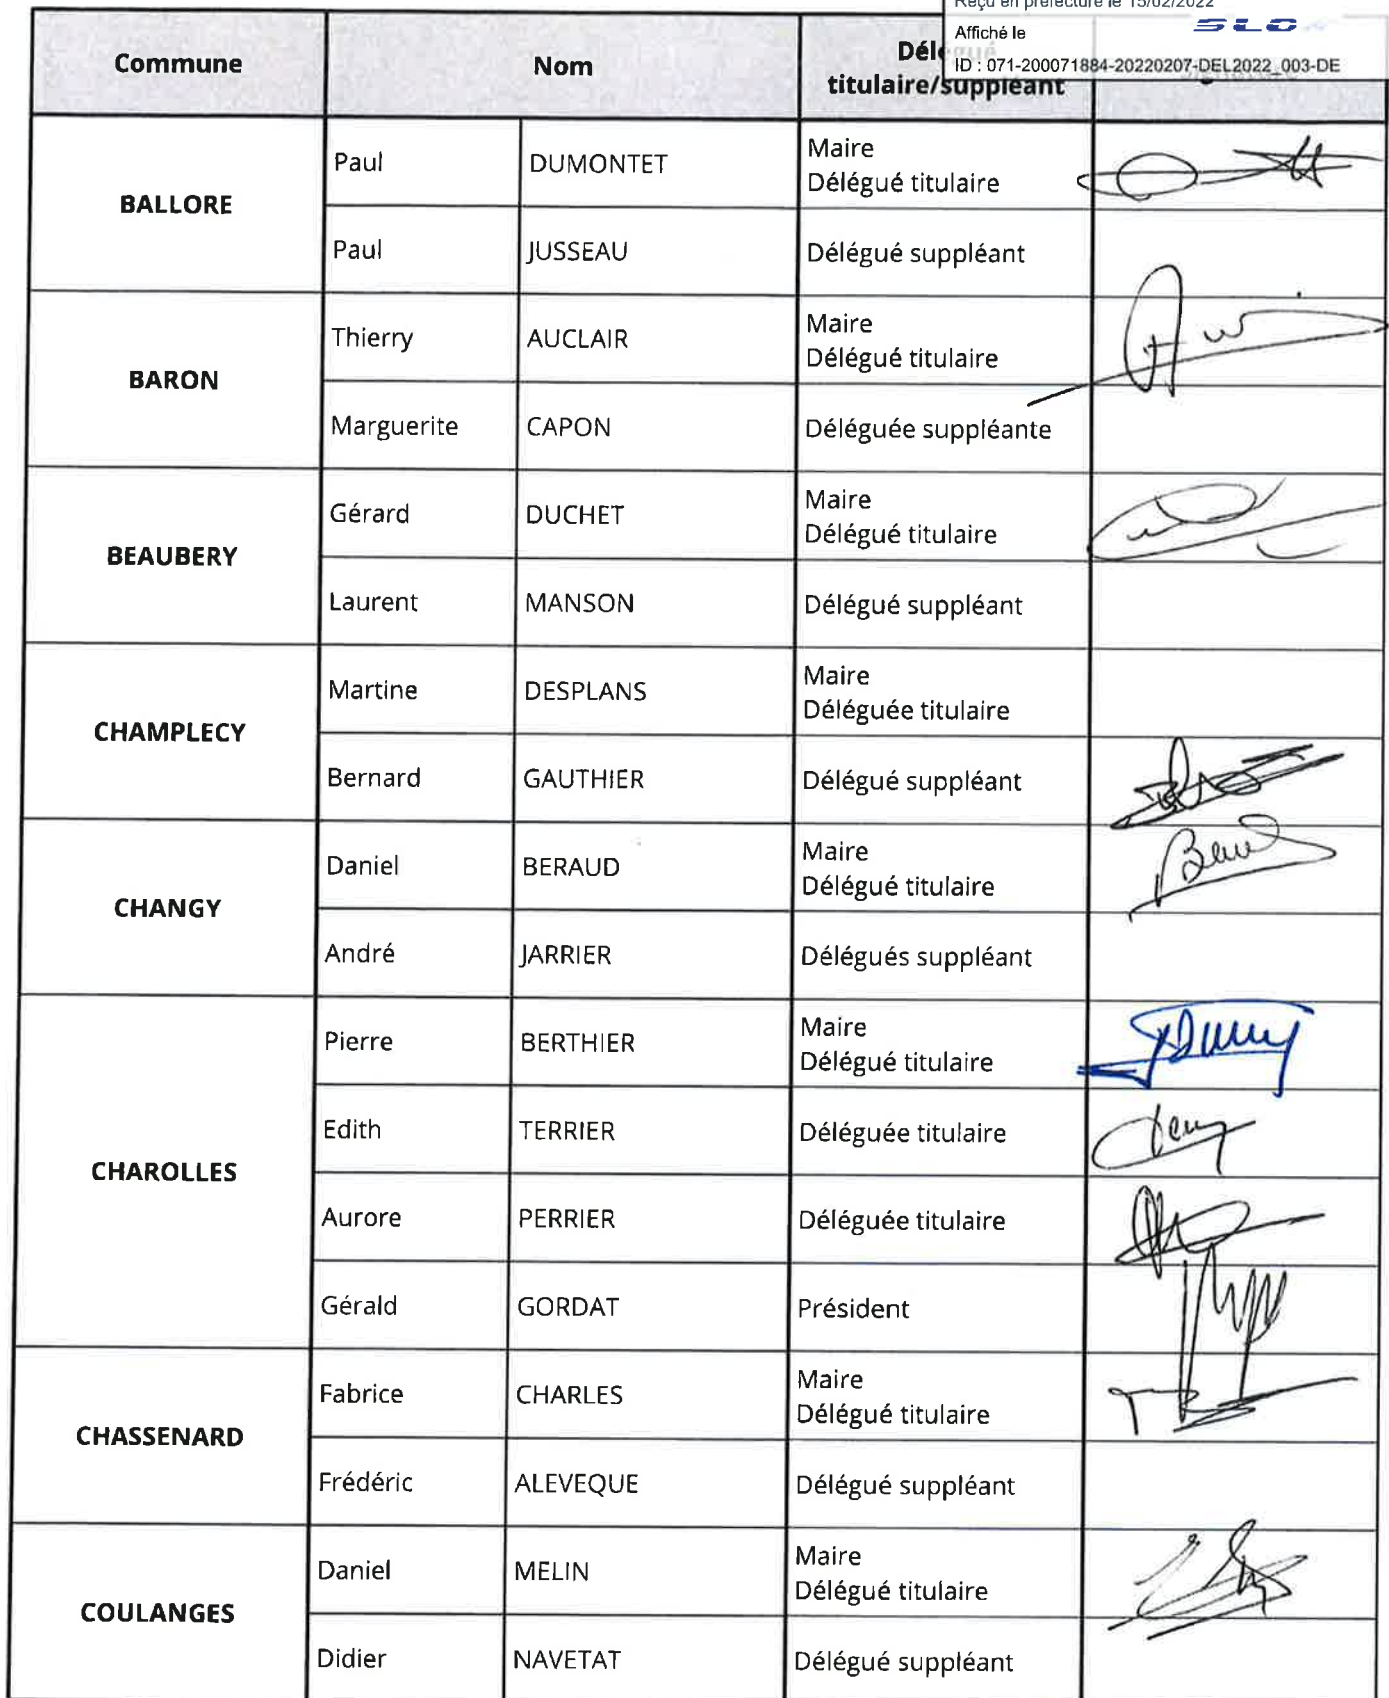 Reçu en préfecture le 15/02/2022
Affiché le
SLO
ID : 071-200071884-20220207-DEL2022_003-DE
Commune Nom Délégué
titulaire/suppléant
BALLORE
Paul DUMONTET Maire
Délégué titulaire
Paul JUSSEAU Délégué suppléant
BARON
Thierry AUCLAIR Maire
Délégué titulaire
Marguerite CAPON Déléguée suppléante
BEAUBERY
Gérard DUCHET Maire
Délégué titulaire
Laurent MANSON Délégué suppléant
CHAMPLECY
Martine DESPLANS Maire
Déléguée titulaire
Bernard GAUTHIER Délégué suppléant
CHANGY
Daniel BERAUD Maire
Délégué titulaire
André JARRIER Délégués suppléant
CHAROLLES
Pierre BERTHIER Maire
Délégué titulaire
Edith TERRIER Déléguée titulaire
Aurore PERRIER Déléguée titulaire
Gérald GORDAT Président
CHASSENARD
Fabrice CHARLES Maire
Délégué titulaire
Frédéric ALEVEQUE Délégué suppléant
COULANGES
Daniel MELIN Maire
Délégué titulaire
Didier NAVETAT Délégué suppléant